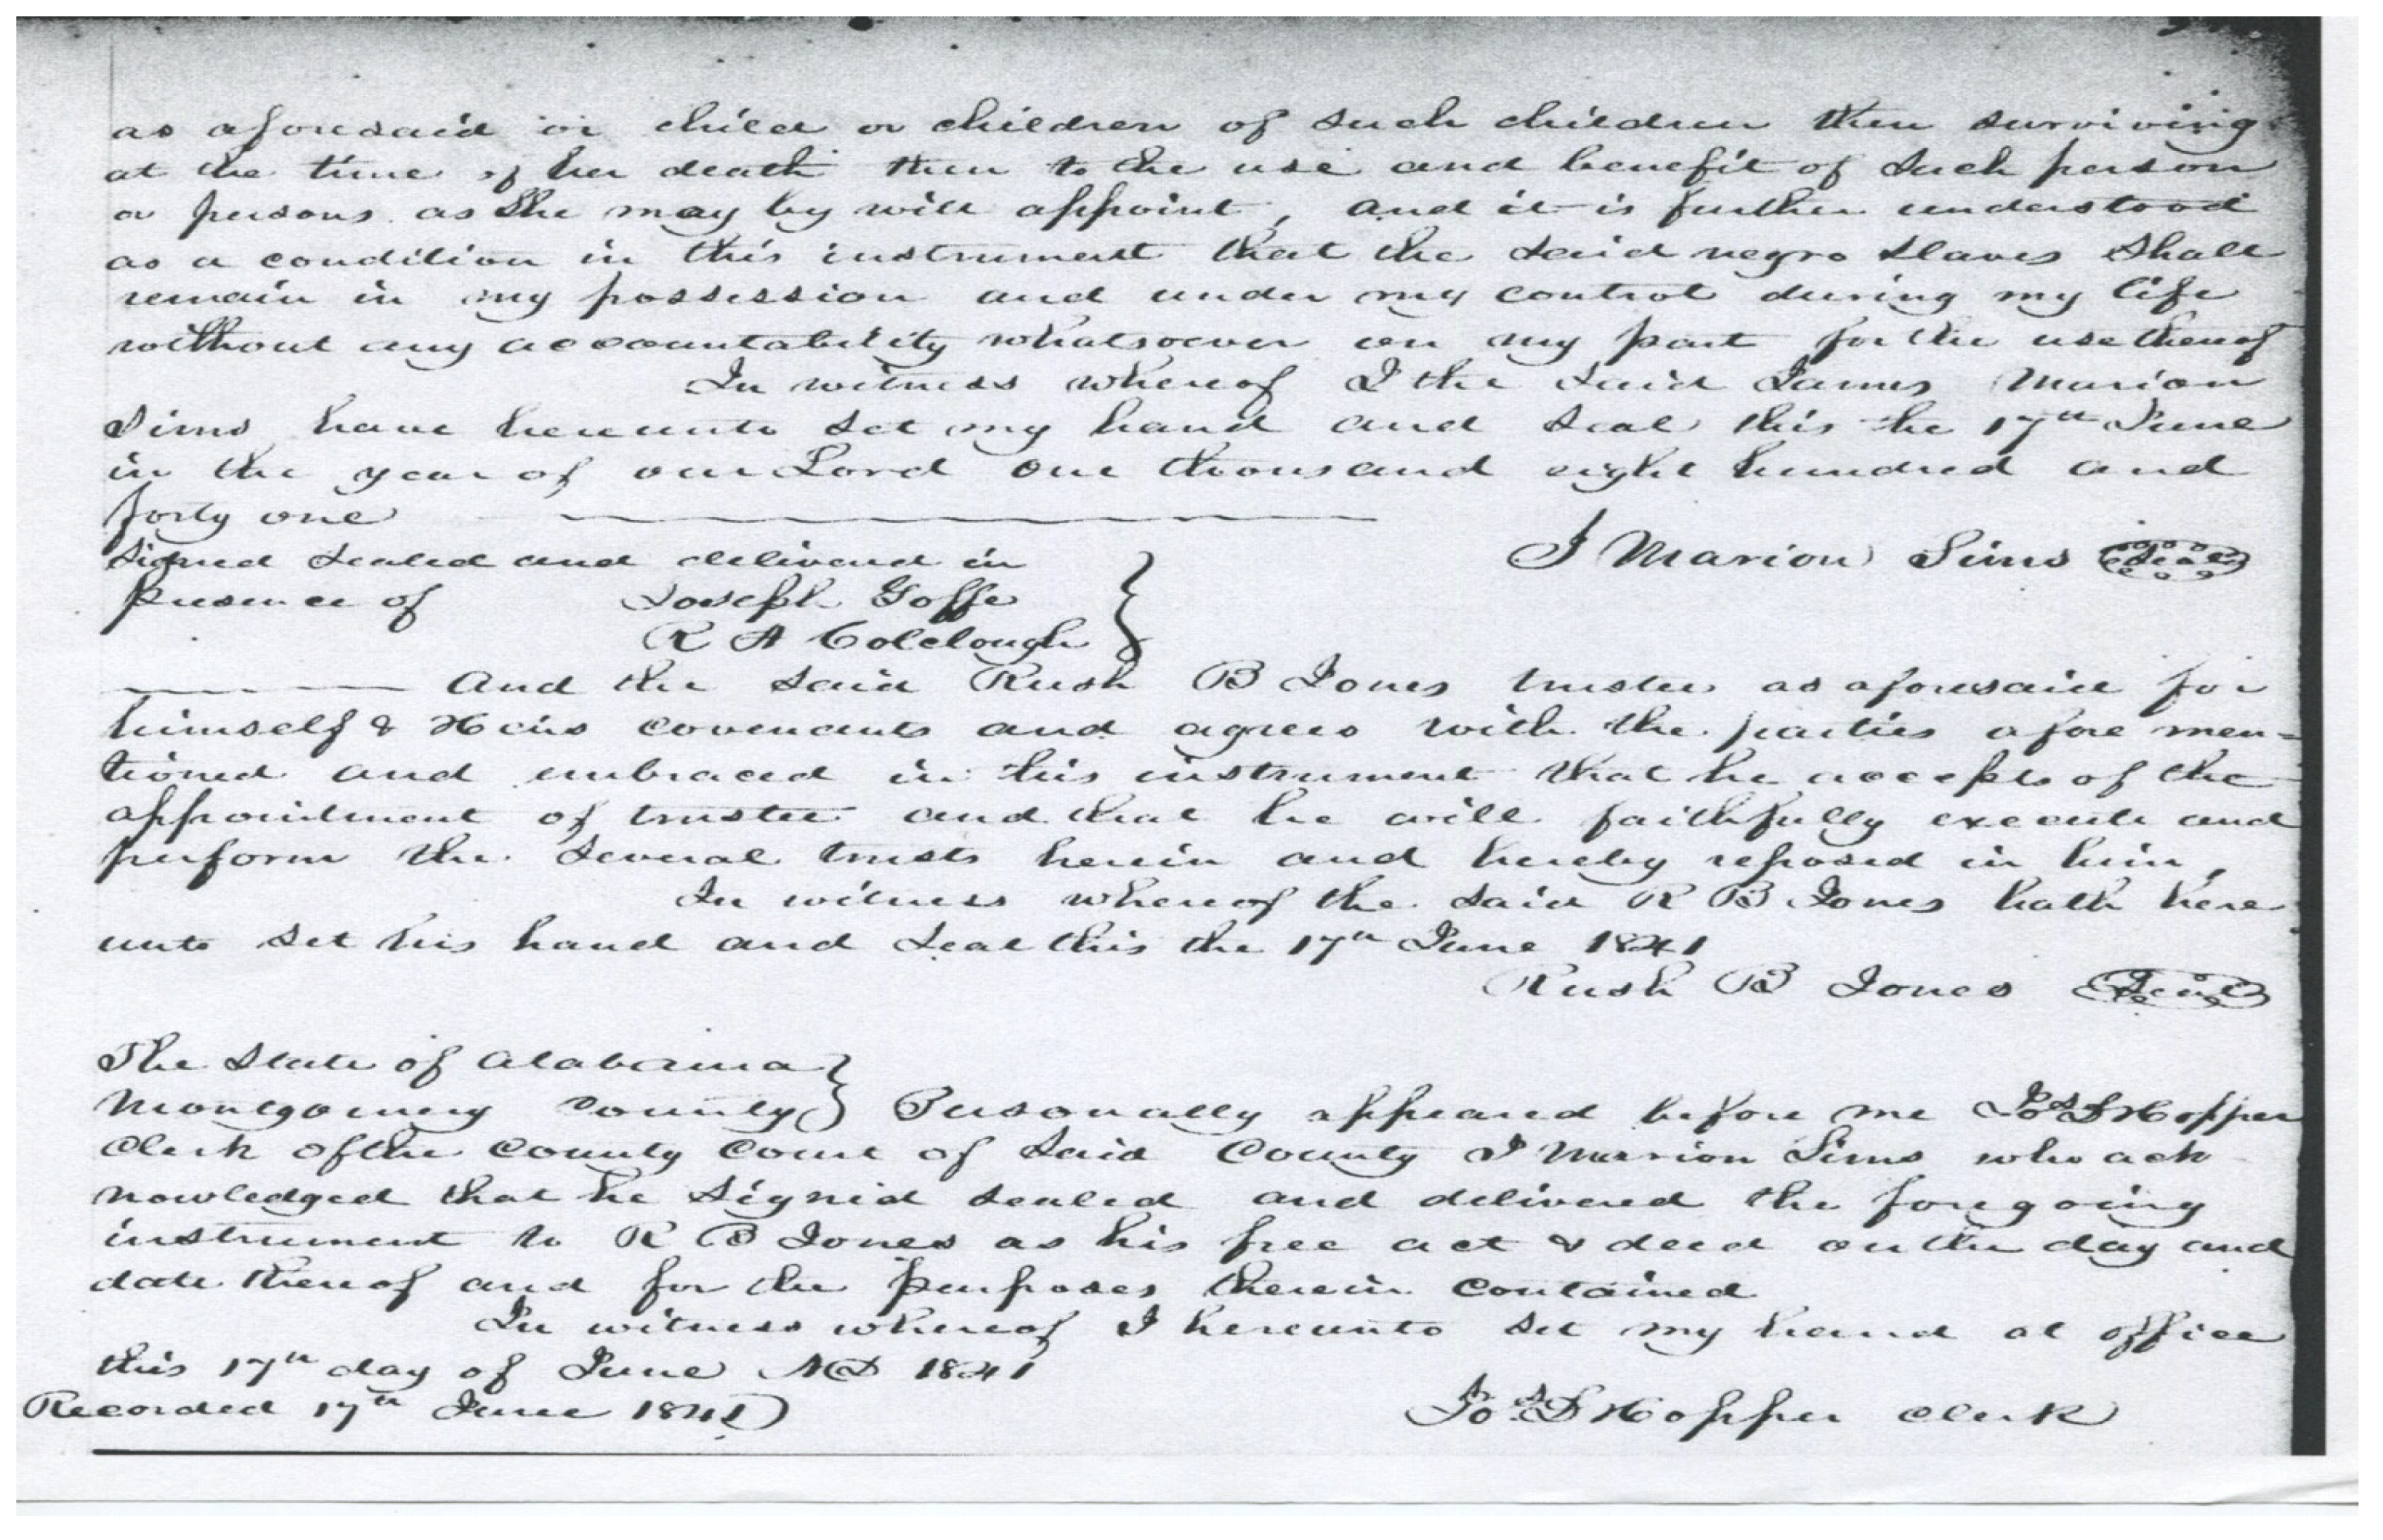 as aforesaid or child or children of such children then surviving
at the time of her death then to the use and benefit of such person
or persons as she may by will appoint, and it is further understood
as a condition in this instrument that the said negro slaves shall
remain in my possession and under my control during my life
without any accountability whatsoever on my part for the use thereof
In witness whereof I the said James Marion
Sims have hereunto set my hand and seal this the 17th June
in the year of our Lord one thousand eight hundred and
forty one
J Marion Sims Seal
Signed sealed and delivered in
presence of Joseph Goffe
R A Colclough
And the said Rush B Jones trustee as aforesaid for
himself & Heirs covenants and agrees with the parties afore men=
tioned and embraced in this instrument that he accepts of the
appointment of trustee and that he will faithfully execute and
perform the several trusts herein and hereby reposed in him,
In witness whereof the said R B Jones hath here
unto set his hand and seal this the 17th June 1841
Rush B Jones Seal
The State of Alabama
Montgomery County } Personally appeared before me Jos D Hopper
Clerk of the County Court of said County J Marion Sims who ack
nowledged that he signed sealed and delivered the foregoing
instrument to R B Jones as his free act & deed on the day and
date thereof and for the purposes therein contained
In witness whereof I hereunto set my hand at office
this 17th day of June AD 1841
Recorded 17th June 1841 Jos D Hopper Clerk